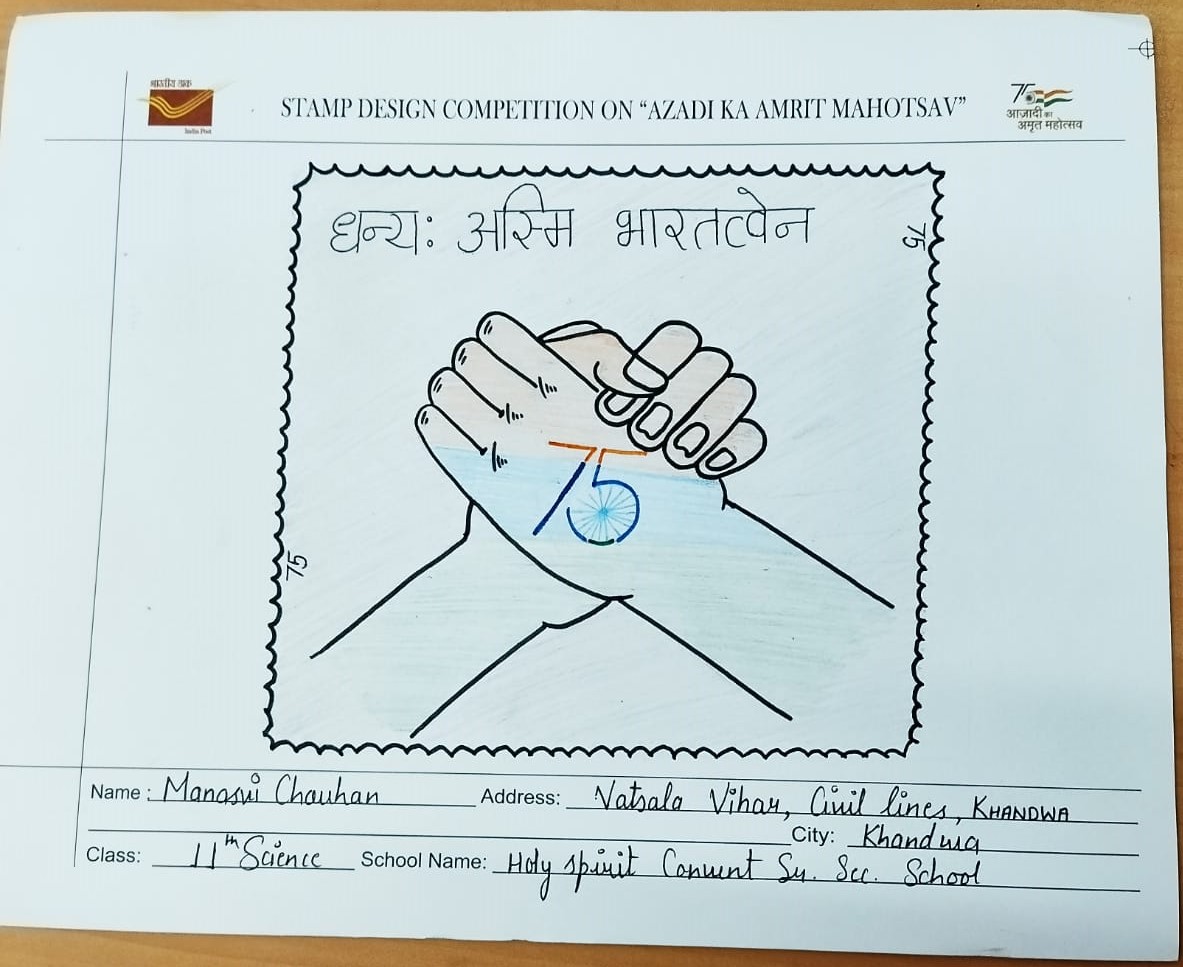 भारतीय डाक
India Post
STAMP DESIGN COMPETITION ON “AZADI KA AMRIT MAHOTSAV”
75
आज़ादी का
अमृत महोत्सव
धन्य: अस्मि भारतत्वेन
75
75
75
Name : Manasvi Chauhan Address: Vatsala Vihar, Civil lines, KHANDWA
City: Khandwa
Class: 11th Science School Name: Holy spirit Convent Sr. Sec. School